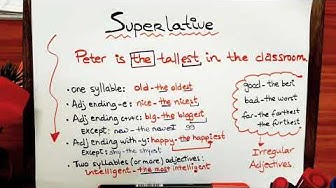 Superlative
Peter is the tallest in the classroom.
• one syllable: old - the oldest
• Adj ending -e: nice - the nicest
• Adj ending cvc: big - the biggest
Except: new - the newest
• Adj ending with -y: happy - the happiest
Except: shy - the shyest
• Two syllables (or more) adjectives:
intelligent - the most intelligent
good - the best
bad - the worst
far - the farthest
the furthest
Irregular
Adjectives